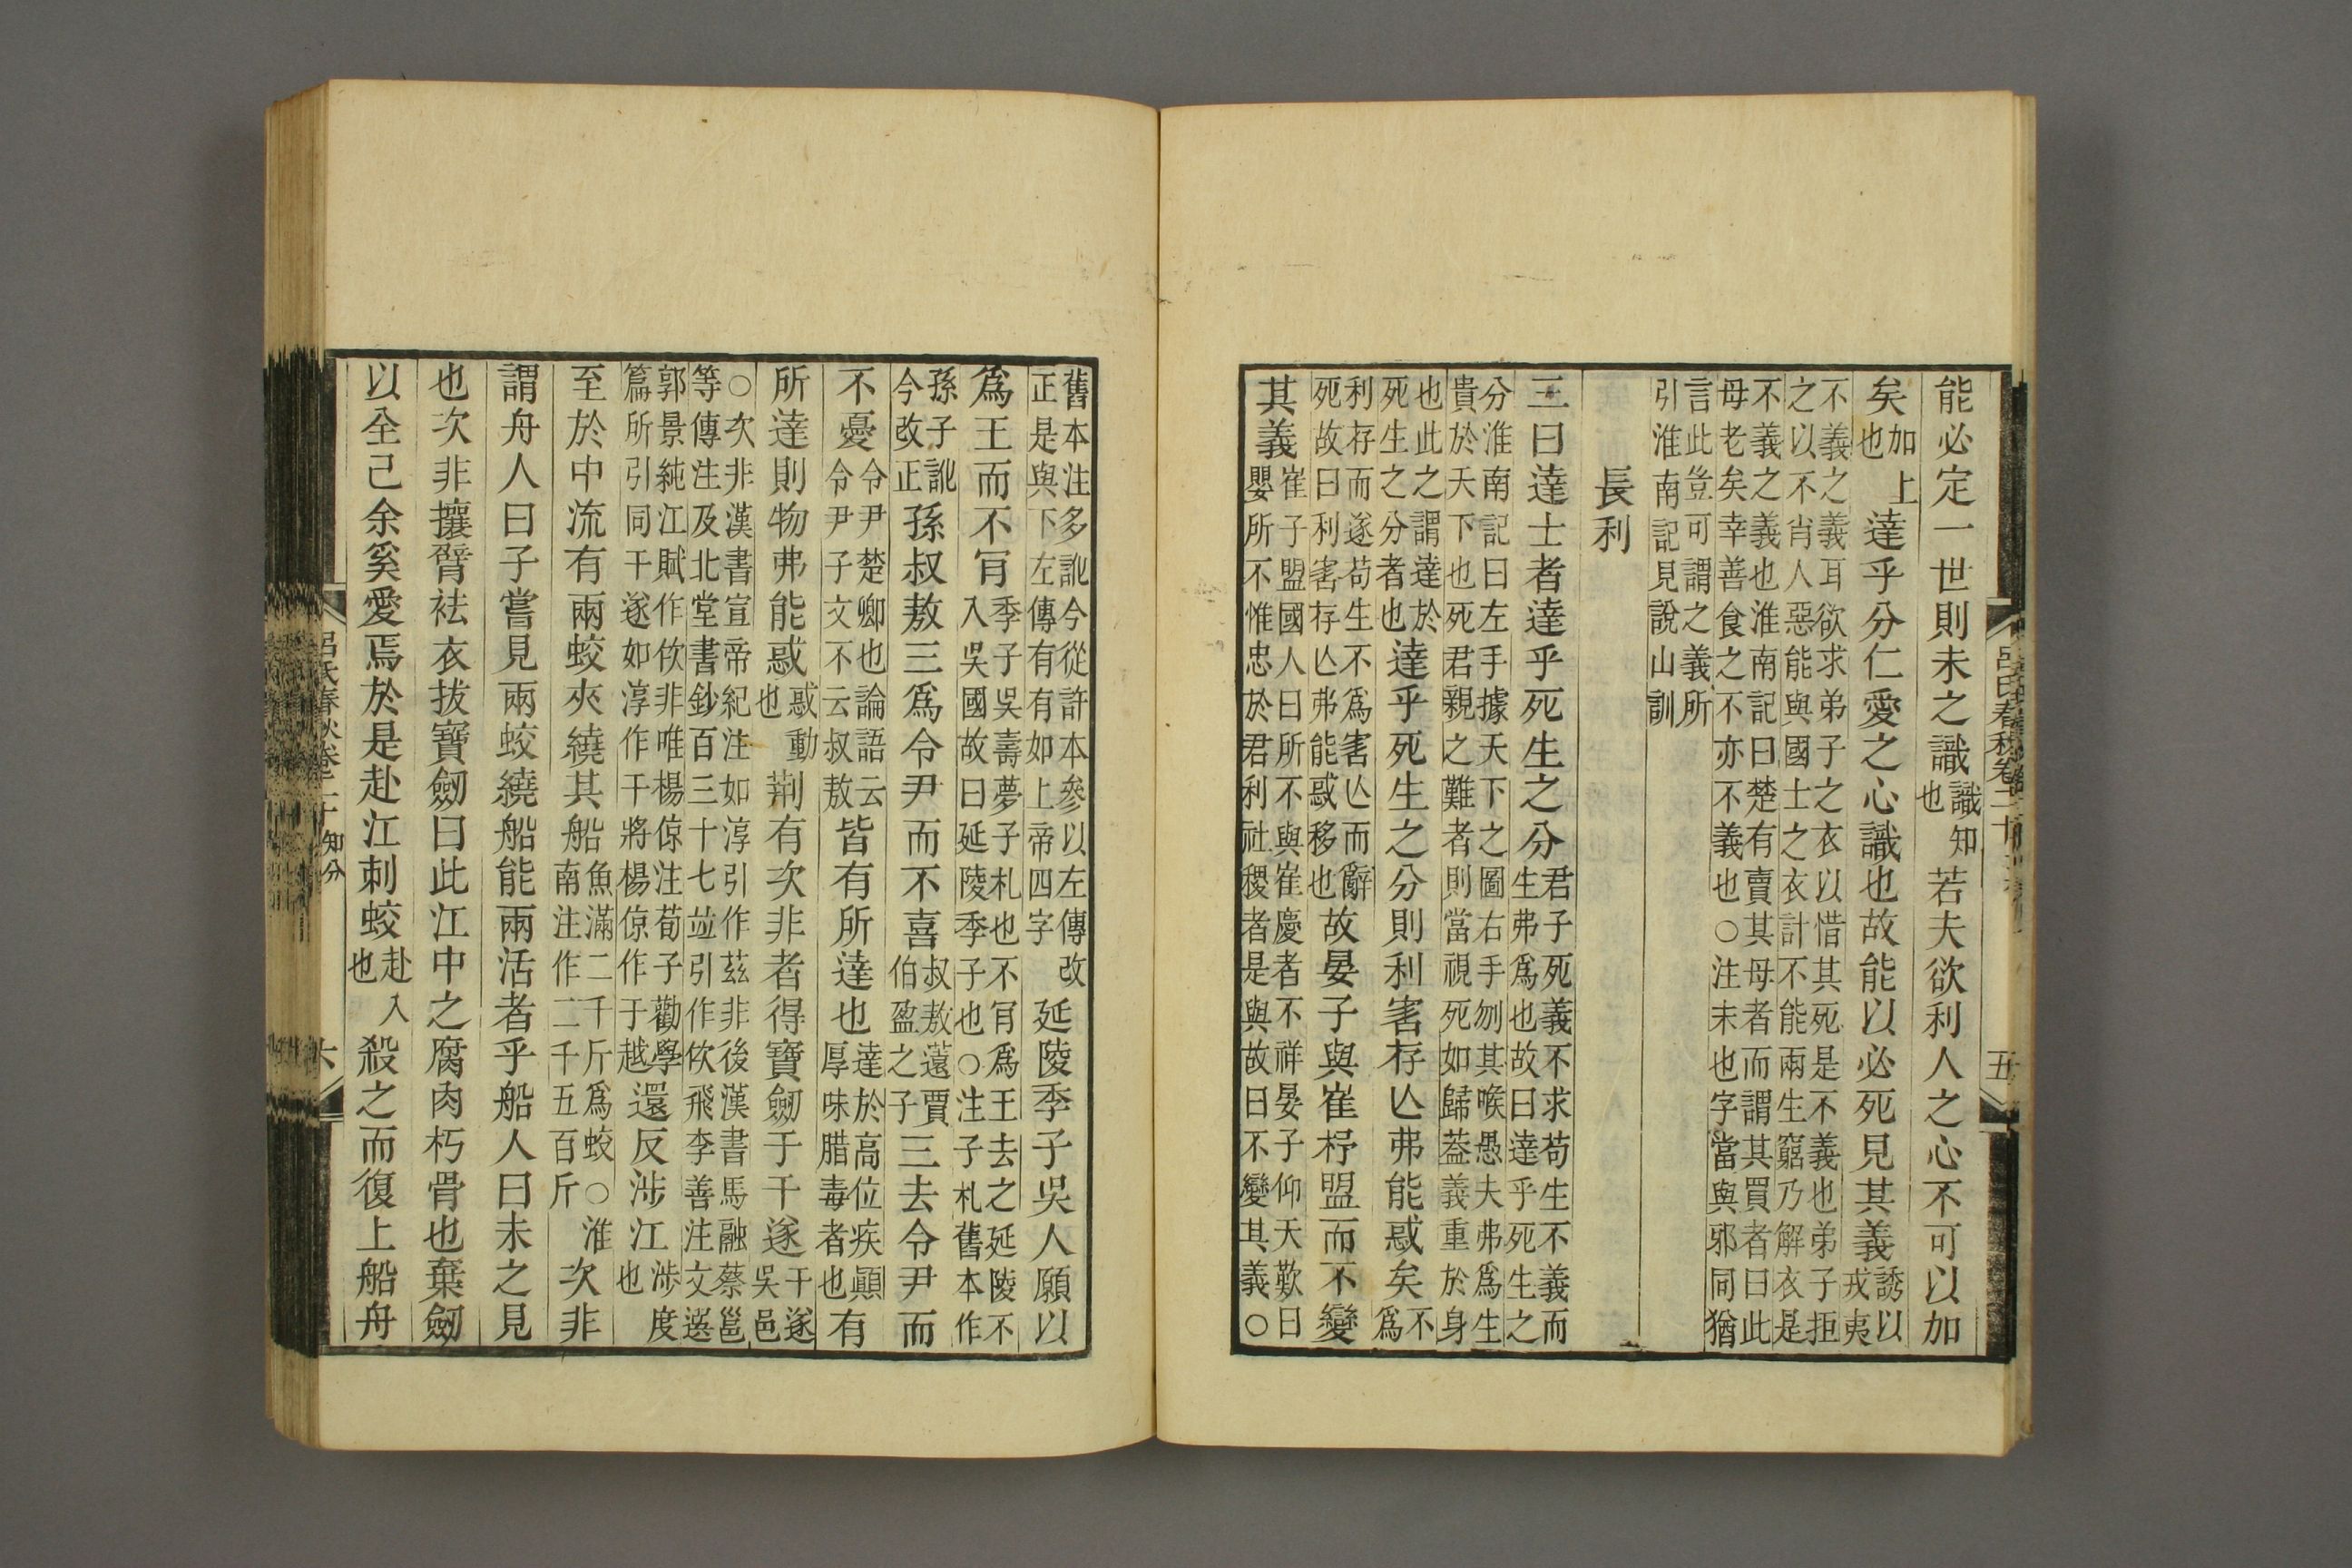 能必定一世則未之識識知也若夫欲利人之心不可以加
矣加上也達乎分仁愛之心識也故能以必死見其義誘以戎夷
不義之義耳欲求弟子之衣以惜其死是不義也弟子拒
之以不肖人惡能與國士之衣計不能兩生窮乃解衣是
不義之義也淮南記曰楚有賣其母者而謂其買者曰此
母老矣幸善食之不亦不義也○注末也字當與邪同猶
言此豈可謂之義所
引淮南記見說山訓
長利
三曰達士者達乎死生之分君子死義不求苟生不義而生弗為也故曰達乎死生之
分淮南記曰左手據天下之圖右手刎其喉愚夫弗為生
貴於天下也死君親之難者則當視死如歸葢義重於身
也此之謂達於死生之分者也達乎死生之分則利害存亾弗能惑矣不為
利存而遂苟生不為害亾而辭死故曰利害存亾弗能惑移也故晏子與崔杼盟而不變
其義崔子盟國人曰所不與崔慶者不祥晏子仰天歎曰嬰所不惟忠於君利社稷者是與故曰不變其義○
舊本注多訛今從許本參以左傳改正是與下左傳有有如上帝四字延陵季子吳人願以
為王而不肯季子吳壽夢子札也不肯為王去之延陵不入吳國故曰延陵季子也○注子札舊本作
孫子訛今改正孫叔敖三為令尹而不喜叔敖薳賈伯盈之子三去令尹而
不憂令尹楚卿也論語云令尹子文不云叔敖皆有所達也達於高位疾顚厚味腊毒者也有
所達則物弗能惑惑動也荆有次非者得寶劒于干遂干遂吳邑
○次非漢書宣帝紀注如淳引作茲非後漢書馬融蔡邕
等傳注及北堂書鈔百三十七竝引作佽飛李善注文選
郭景純江賦作佽非唯楊倞注荀子勸學
篇所引同干遂如淳作干將楊倞作于越還反涉江涉度也
至於中流有兩蛟夾繞其船魚滿二千斤為蛟○淮南注作二千五百斤次非
謂舟人曰子嘗見兩蛟繞船能兩活者乎船人曰未之見
也次非攘臂袪衣拔寶劒曰此江中之腐肉朽骨也棄劒
以全己余奚愛焉於是赴江刺蛟赴入也殺之而復上船舟
呂氏春秋卷二十 知分
六
五